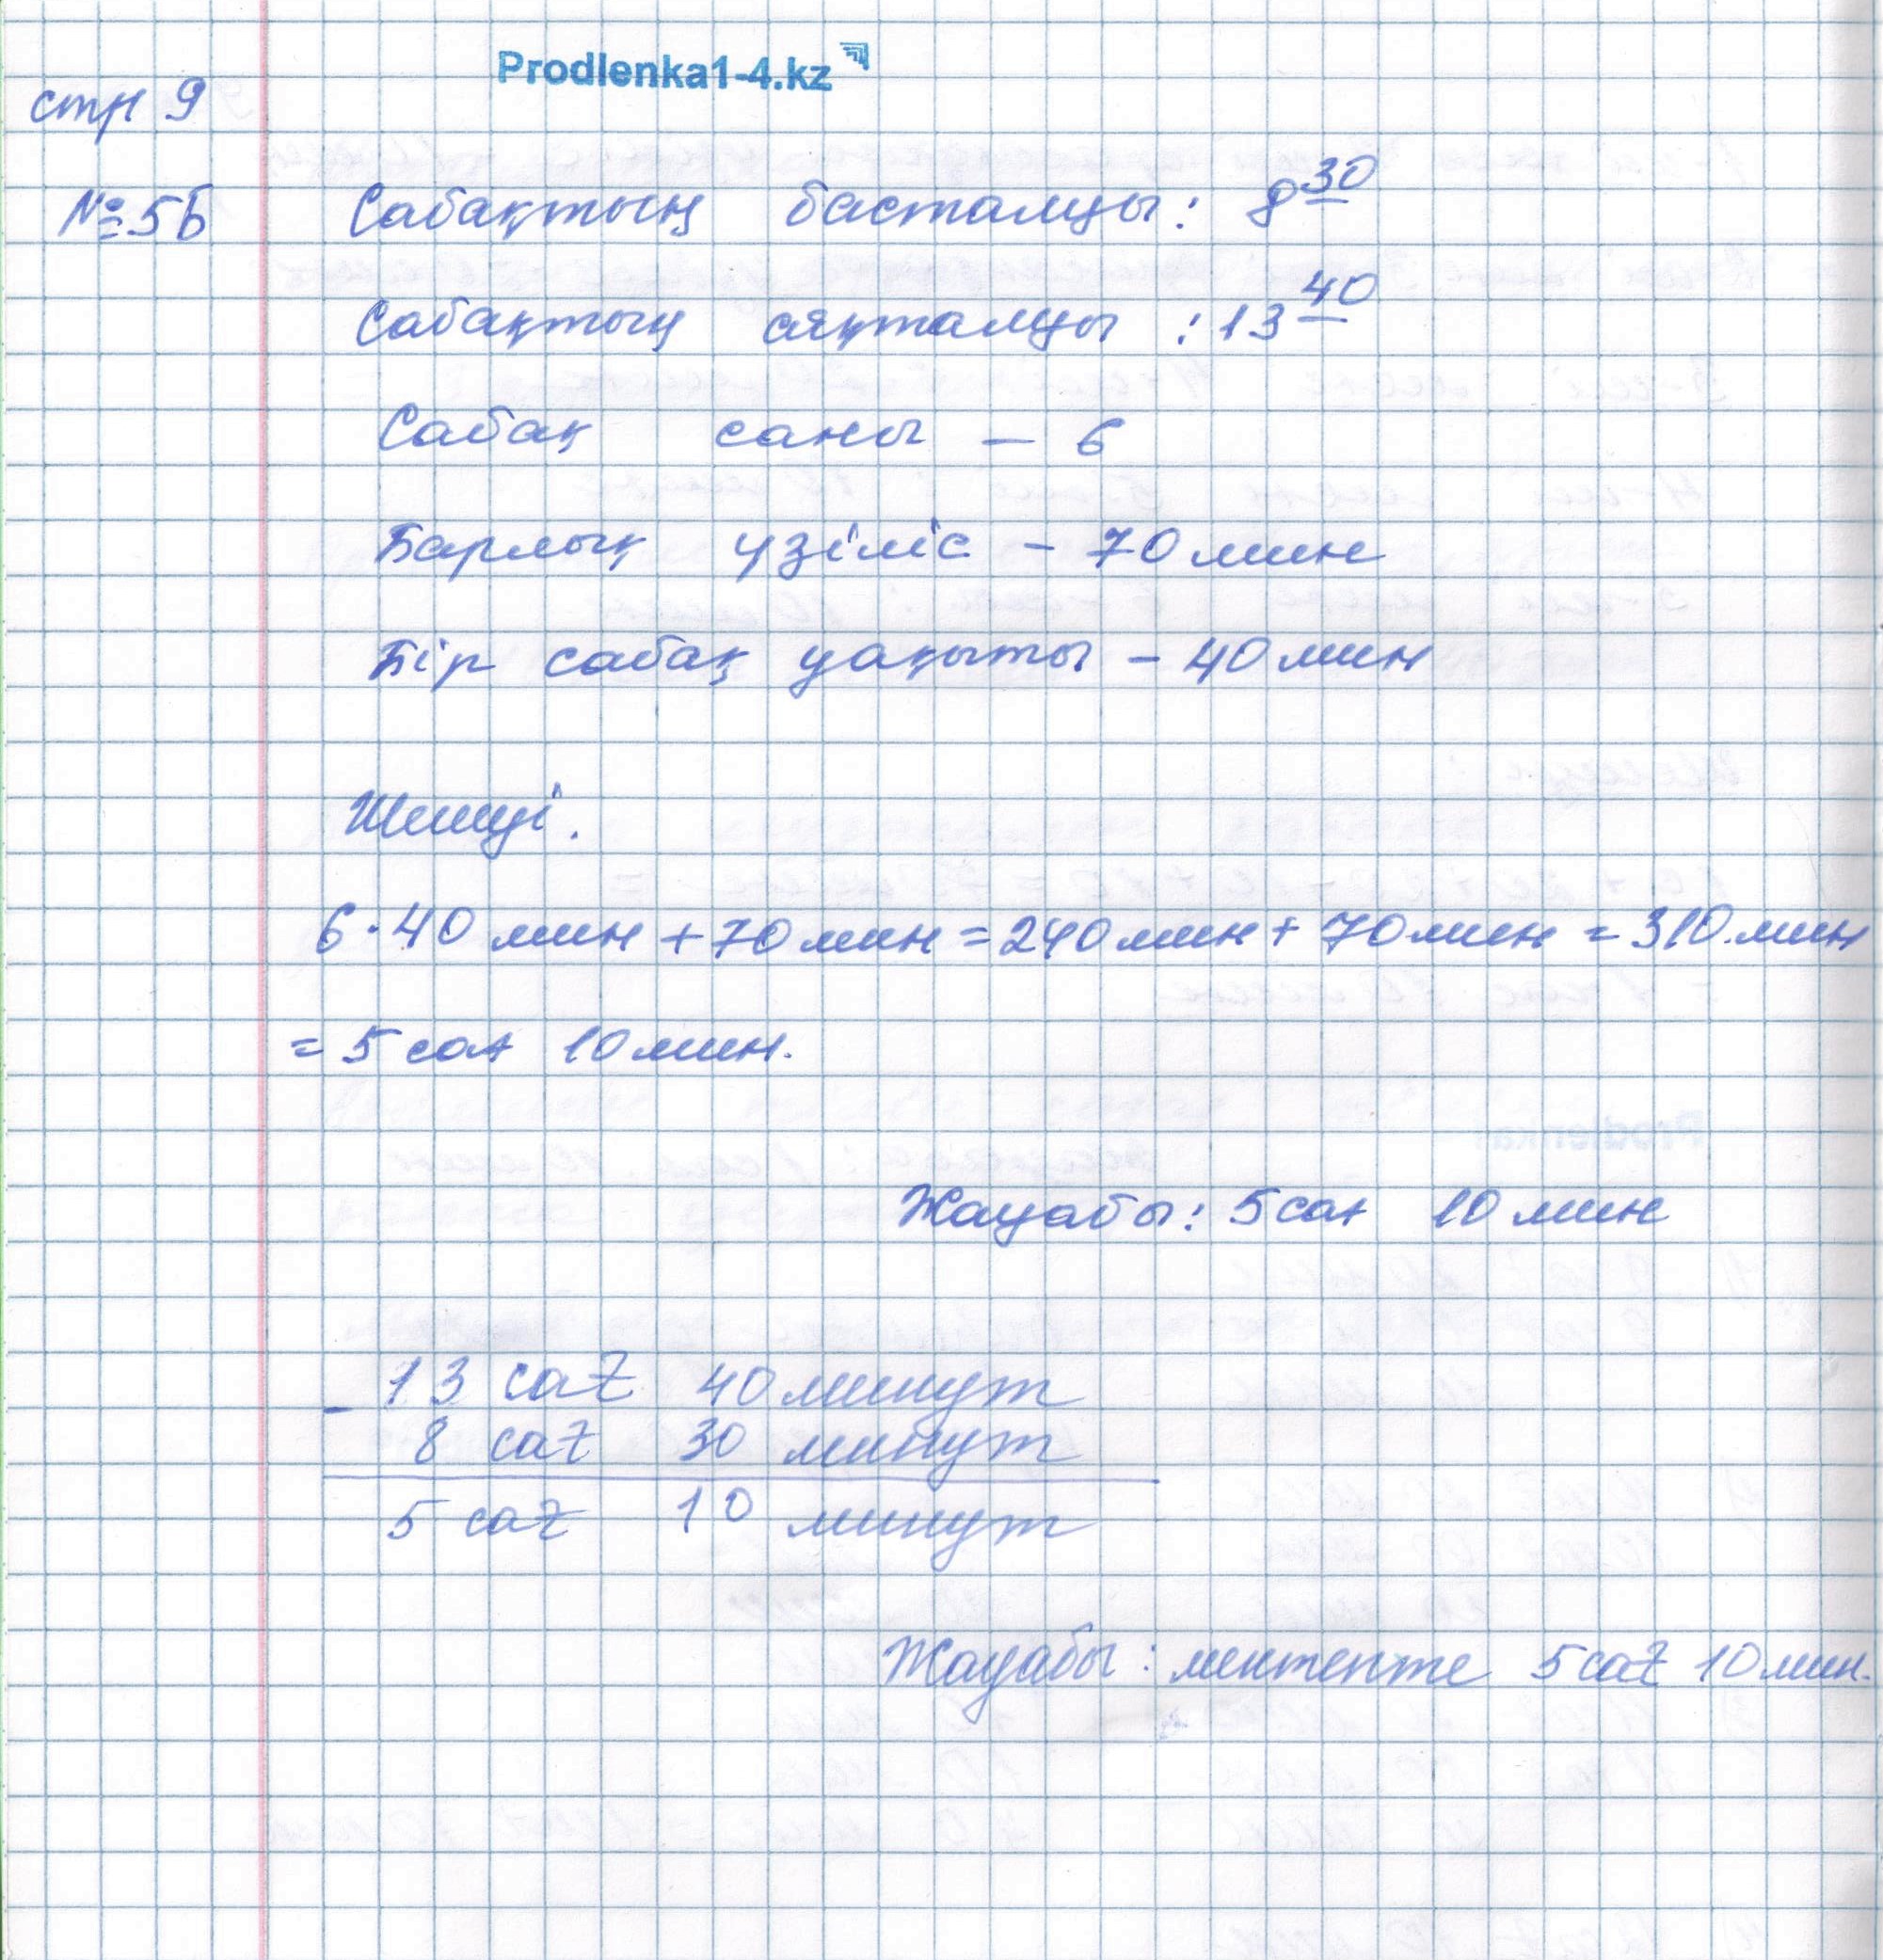 Prodlenka1-4.kz
стр 9
№5б Сабақтың басталуы: 8 30
Сабақтың аяқталуы : 13 40
Сабақ саны – 6
Барлық үзіліс – 70 мин
Бір сабақ уақыты – 40 мин
Шешуі.
6·40 мин + 70 мин = 240 мин + 70 мин = 310 мин
= 5 сағ 10 мин.
Жауабы: 5 сағ 10 мин
- 13 сағ 40 минут
8 сағ 30 минут
5 сағ 10 минут
Жауабы: мектепте 5 сағ 10 мин.